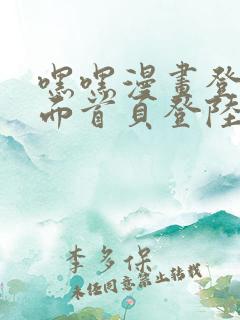 嘿嘿漫畫登
而首頁登陸
李多保
未经同意禁止转载